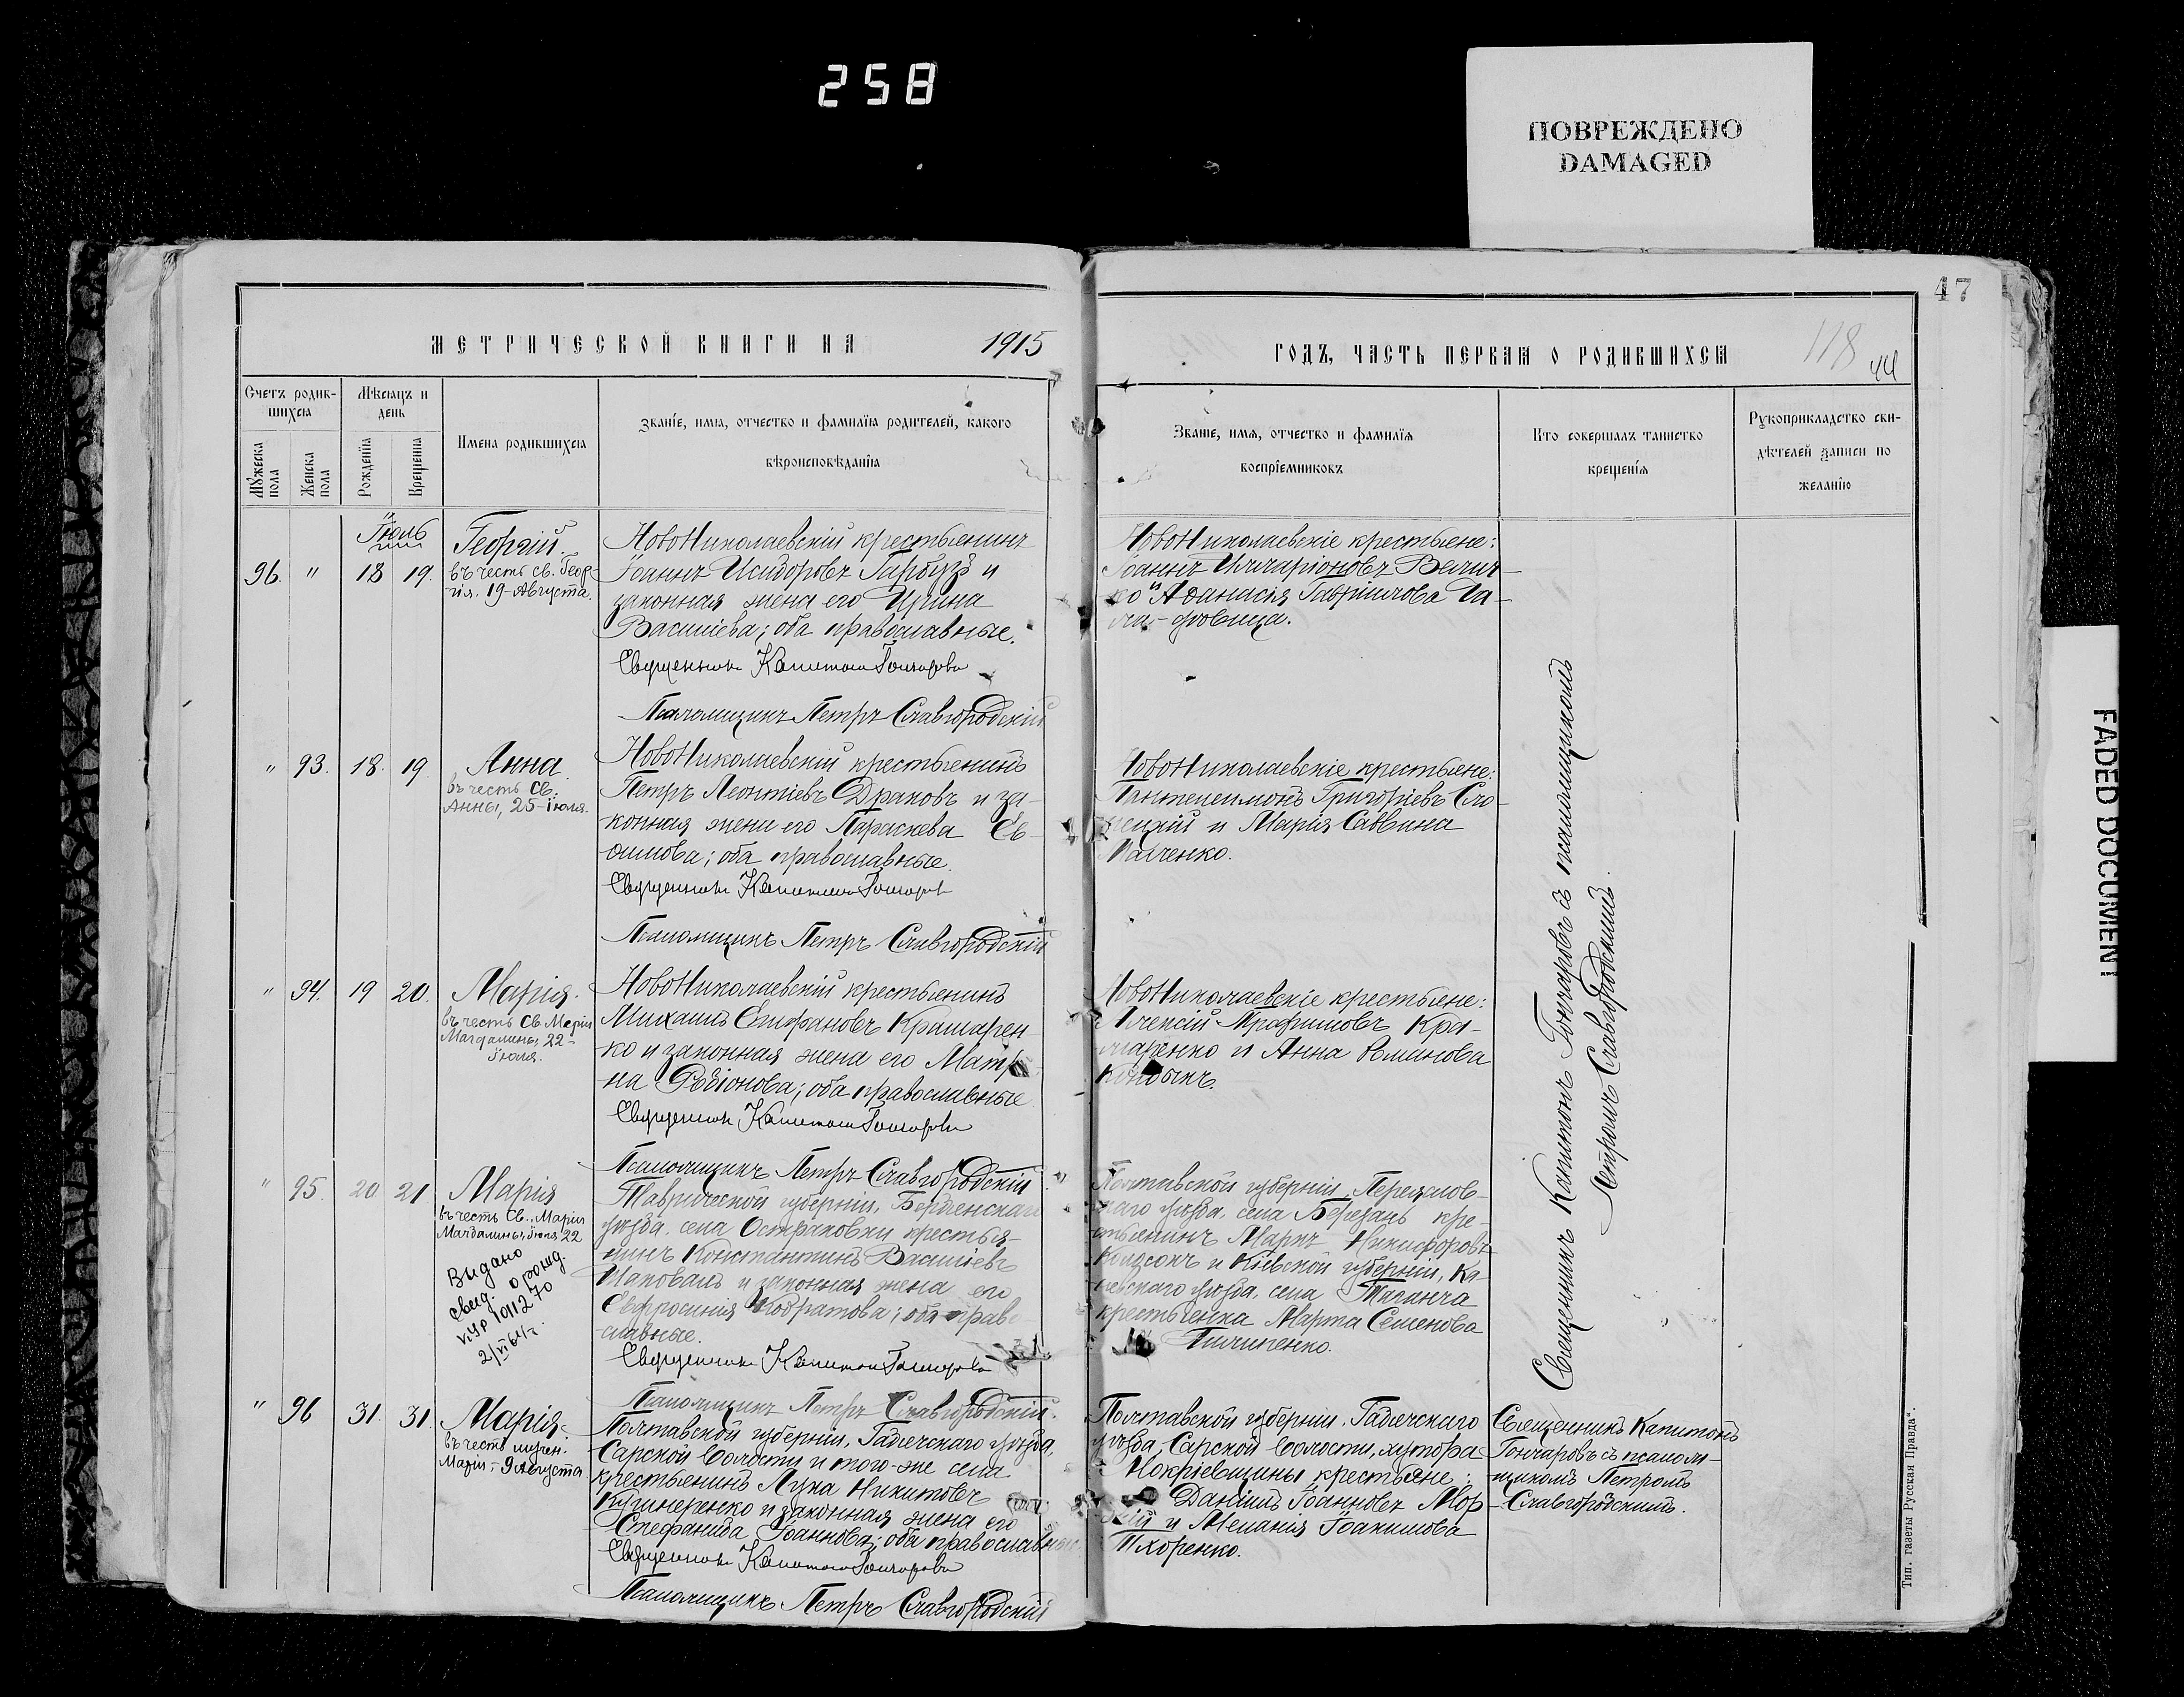 258
ПОВРЕЖДЕНО
DAMAGED
FADED DOCUMENT
47
МЕТРИЧЕСКОЙ КНИГИ НА 1915
Счетъ родив-
шихся
Мѣсяцъ и
день
Мужеска
пола
Женска
пола
Рожденія
Крещенія
Имена родившихся
Званіе, имя, отчество и фамилія родителей, какого
вѣроисповѣданія
Іюль
96. " 18 19.
Георгій.
въ честь св. Геор-
гія. 19-Августа.
НовоНиколаевскій крестьянинъ
Іоаннъ Исидоровъ Гарбузъ и
законная жена его Ирина
Василіева; оба православные.
Священникъ Капитонъ Гончаровъ
Псаломщикъ Петръ Славгородскій
" 93. 18. 19.
Анна.
въ честь Св.
Анны, 25-іюля.
НовоНиколаевскій крестьянинъ
Петръ Леонтіевъ Драковъ и за-
конная жена его Параскева Ев-
оимова; оба православные.
Священникъ Капитонъ Гончаровъ
Псаломщикъ Петръ Славгородскій
" 94. 19 20.
Марія.
въ честь Св. Маріи
Магдалины, 22-
іюля.
НовоНиколаевскій крестьянинъ
Михаилъ Епифановъ Крамарен-
ко и законная жена его Матр
на Родіонова; оба православные
Священникъ Капитонъ Гончаровъ
Псаломщикъ Петръ Славгородскій
" 95. 20 21
Марія
въ честь Св. Маріи
Магдалины, іюля 22
Видано
свид. о рожд.
2/VI 64 г.
Таврической губерніи, Бердянскаго
уѣзда, села Остриковки крестья-
нинъ Константинъ Василіевъ
Шаповалъ и законная жена его
Евфросинія Кодратова; оба право
славные.
Священникъ Капитонъ Гончаровъ
Псаломщикъ Петръ Славгородскій.
" 96 31. 31.
Марія.
въ честь мучен.
Маріи,- 9 Августа
Полтавской губерніи, Гадячскаго уѣзда,
Сарской Волости и того-же села
крестьянинъ Лука Никитовъ
Кушнеренко и законная жена его
Стефанида Іоаннова; оба православные
Священникъ Капитонъ Гончаровъ
Псаломщикъ Петръ Славгородскій
ГОДЪ, ЧАСТЬ ПЕРВАЯ О РОДИВШИХСЯ
118
44
Званіе, имя, отчество и фамилія
воспріемниковъ
Кто совершалъ таинство
крещенія
Рукоприкладство сви-
дѣтелей записи по
желанію
НовоНиколаевскіе крестьяне:
Іоаннъ Илларіоновъ Велич-
ко и Аѳанасія Гавріилова
НовоНиколаевскіе крестьяне:
Пантелеимонъ Григоріевъ
и Марія Саввина
НовоНиколаевскіе крестьяне:
Алексій Трофимовъ Кра-
маренко и Анна Романова
Полтавской губерніи, Переяслов-
скаго уѣзда, села Березань кре-
стьянинъ Маркъ Никифоровъ
и Кіевской губерніи, Ка-
невскаго уѣзда, села Таганча
крестьянка Марта Семенова
Пилипенко.
Полтавской губерніи, Гадячскаго
уѣзда, Сарской Волости, хутора
Мокріевщины крестьяне:
Даніилъ Іоанновъ Мор-
и Меланія Іоакимова
Тхоренко.
Священникъ Капитонъ Гончаровъ съ псаломщикомъ
Петромъ Славгородскимъ.
Священникъ Капитонъ
Гончаровъ съ псалом-
щикомъ Петромъ
Славгородскимъ.
Тип. газеты Русская Правда".